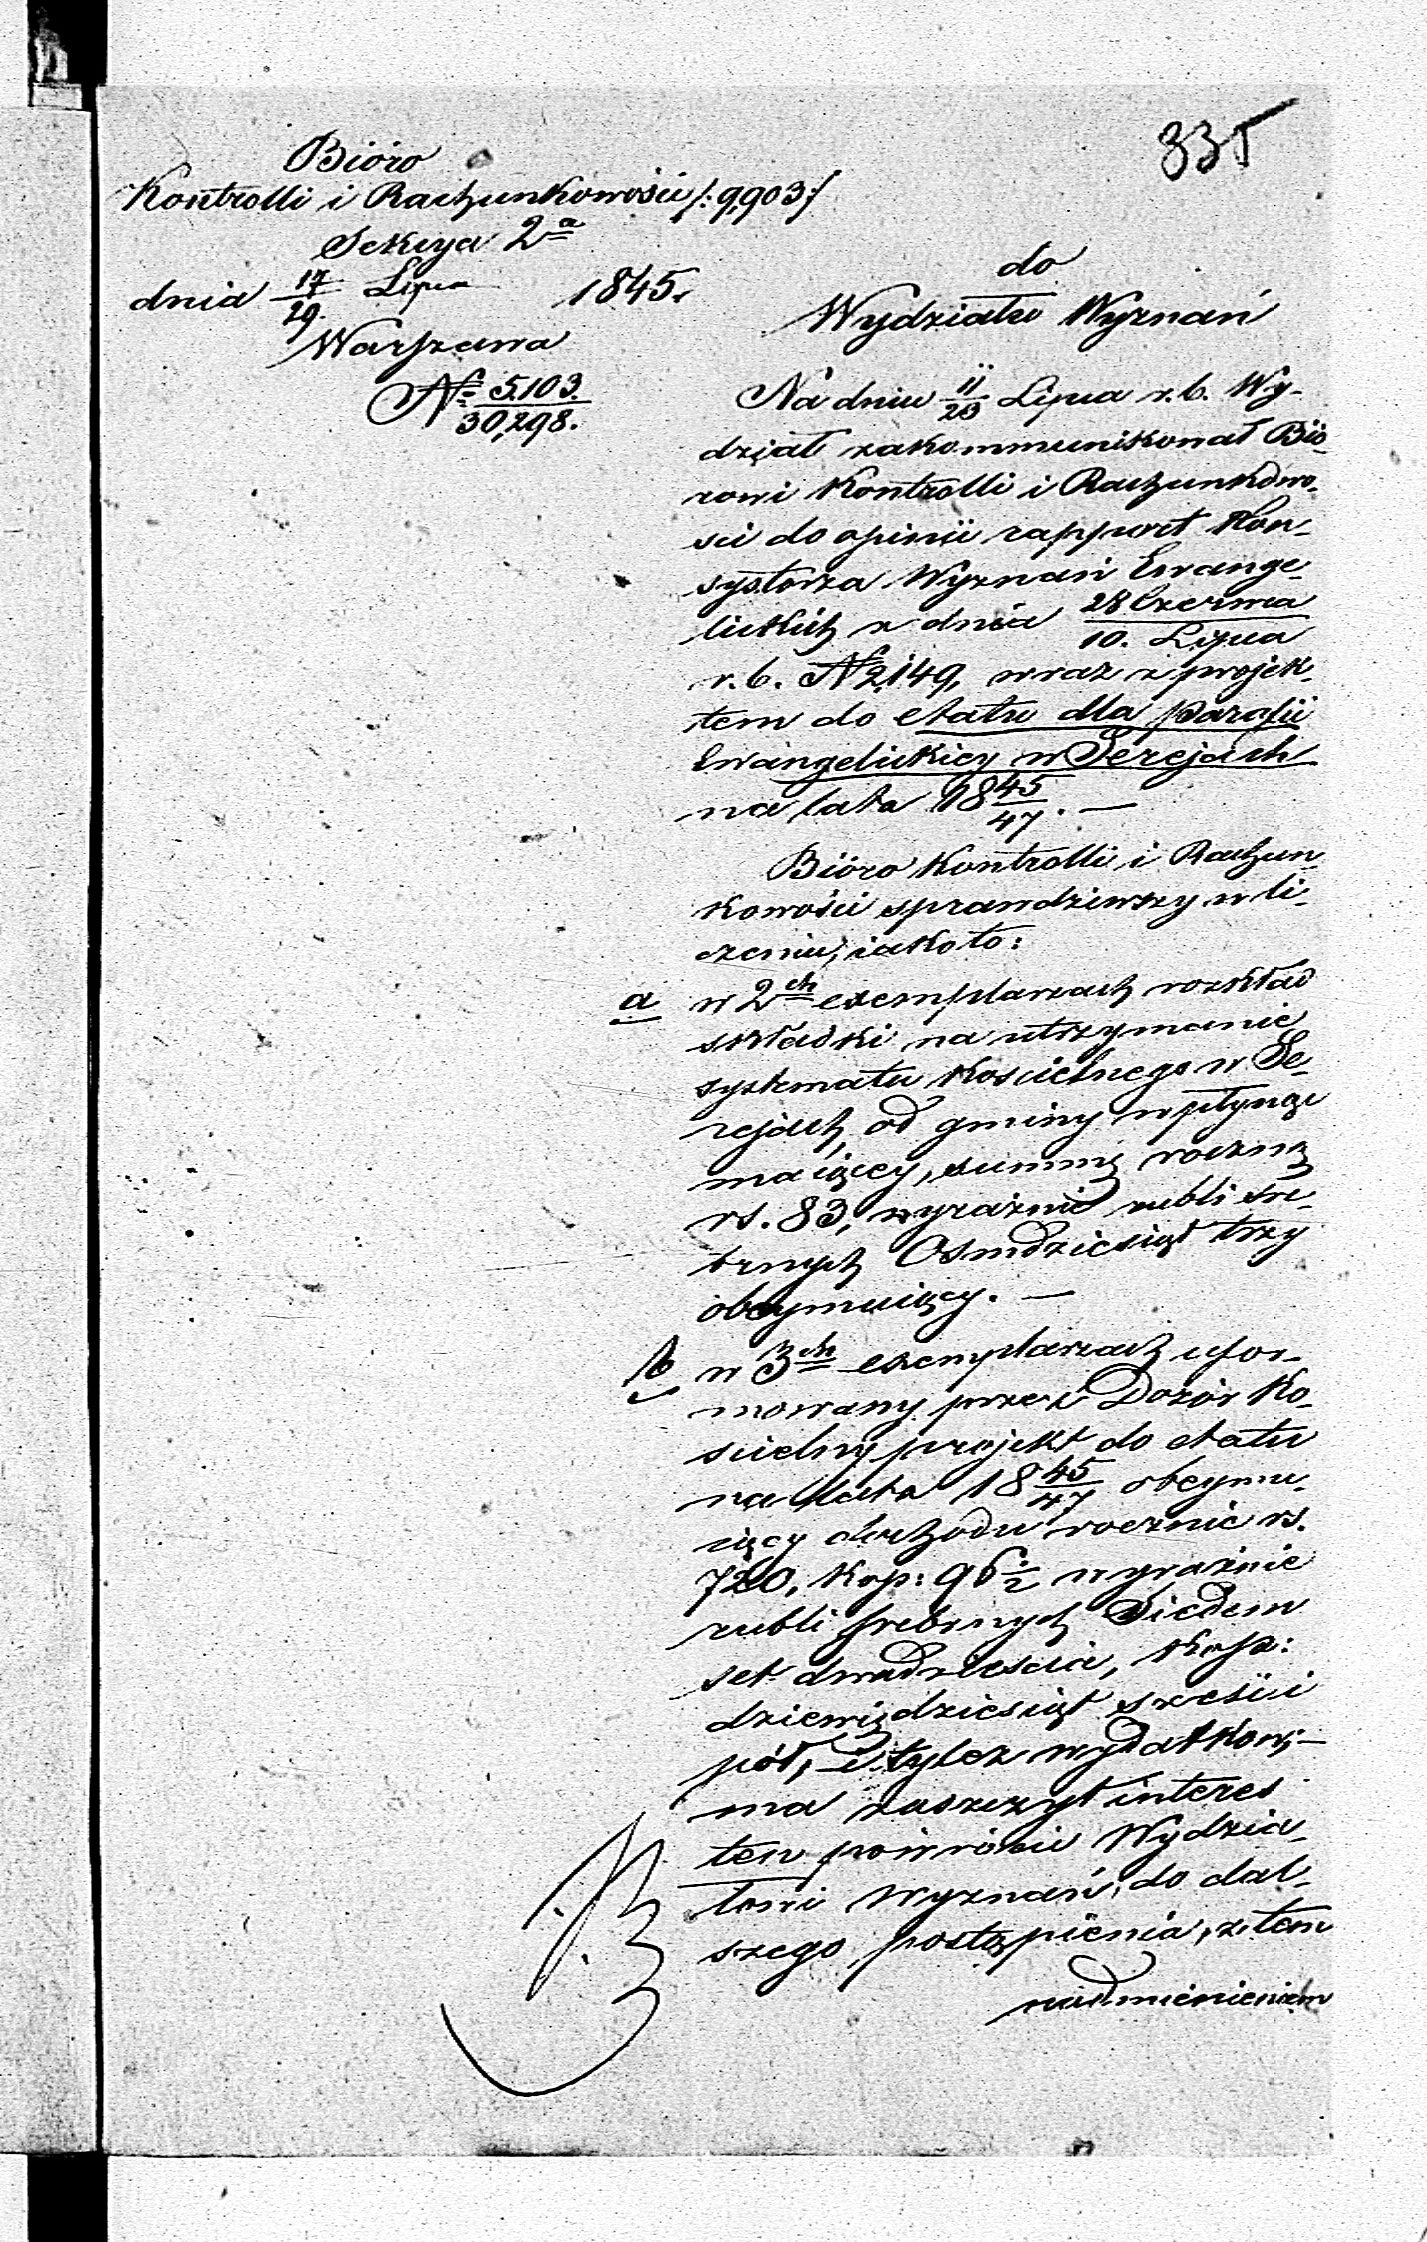 335
Bióro
Kontrolli i Rachunkowości /: 9,903 :/
Sekcya 2a
dnia 17/29. Lipca 1845.
Warszawa
No 5.103./30,298.
do
Wydziału Wyznań
Na dniu 11/23 Lipca r. b. Wy-
dział zakommunikował Bió-
rowi Kontrolli i Rachunkowo-
ści do opinii rapport Kon-
systorza Wyznań Ewange-
lickich z dnia 28 Czerwca/10. Lipca
r. b. No 2,149, wraz z projek-
tem do etatu dla parafii
Ewangelickiey w Serejach
na lata 18 45/47. —
Bióro Kontrolli i Rachun-
kowości sprawdziwszy w li-
czeniu, iako to:
a w 2ch exemplarzach rozkład
składki na utrzymanie
systematu Kościelnego w Se-
rejach, od gminy wpłynąć
maiącey, summę roczną
rs. 83, wyraźnie rubli sre-
brnych Ośmdziesiąt trzy
obeymuiący. —
b w 3ch exemplarzach ufor-
mowany przez Dozór Ko-
ścielny projekt do etatu
na lata 18 45/47 obeymu-
iący dochodu rocznie rs.
720, kop: 96 1/2 wyraźnie
rubli srebrnych Siedem
set dwadzieścia, kop:
dziewięćdziesiąt sześć i
pół, i tyleż wydatków,—
ma zaszczyt interes
ten powrócić Wydzia-
łowi Wyznań, do dal-
szego postąpienia, z tem
nadmienieniem